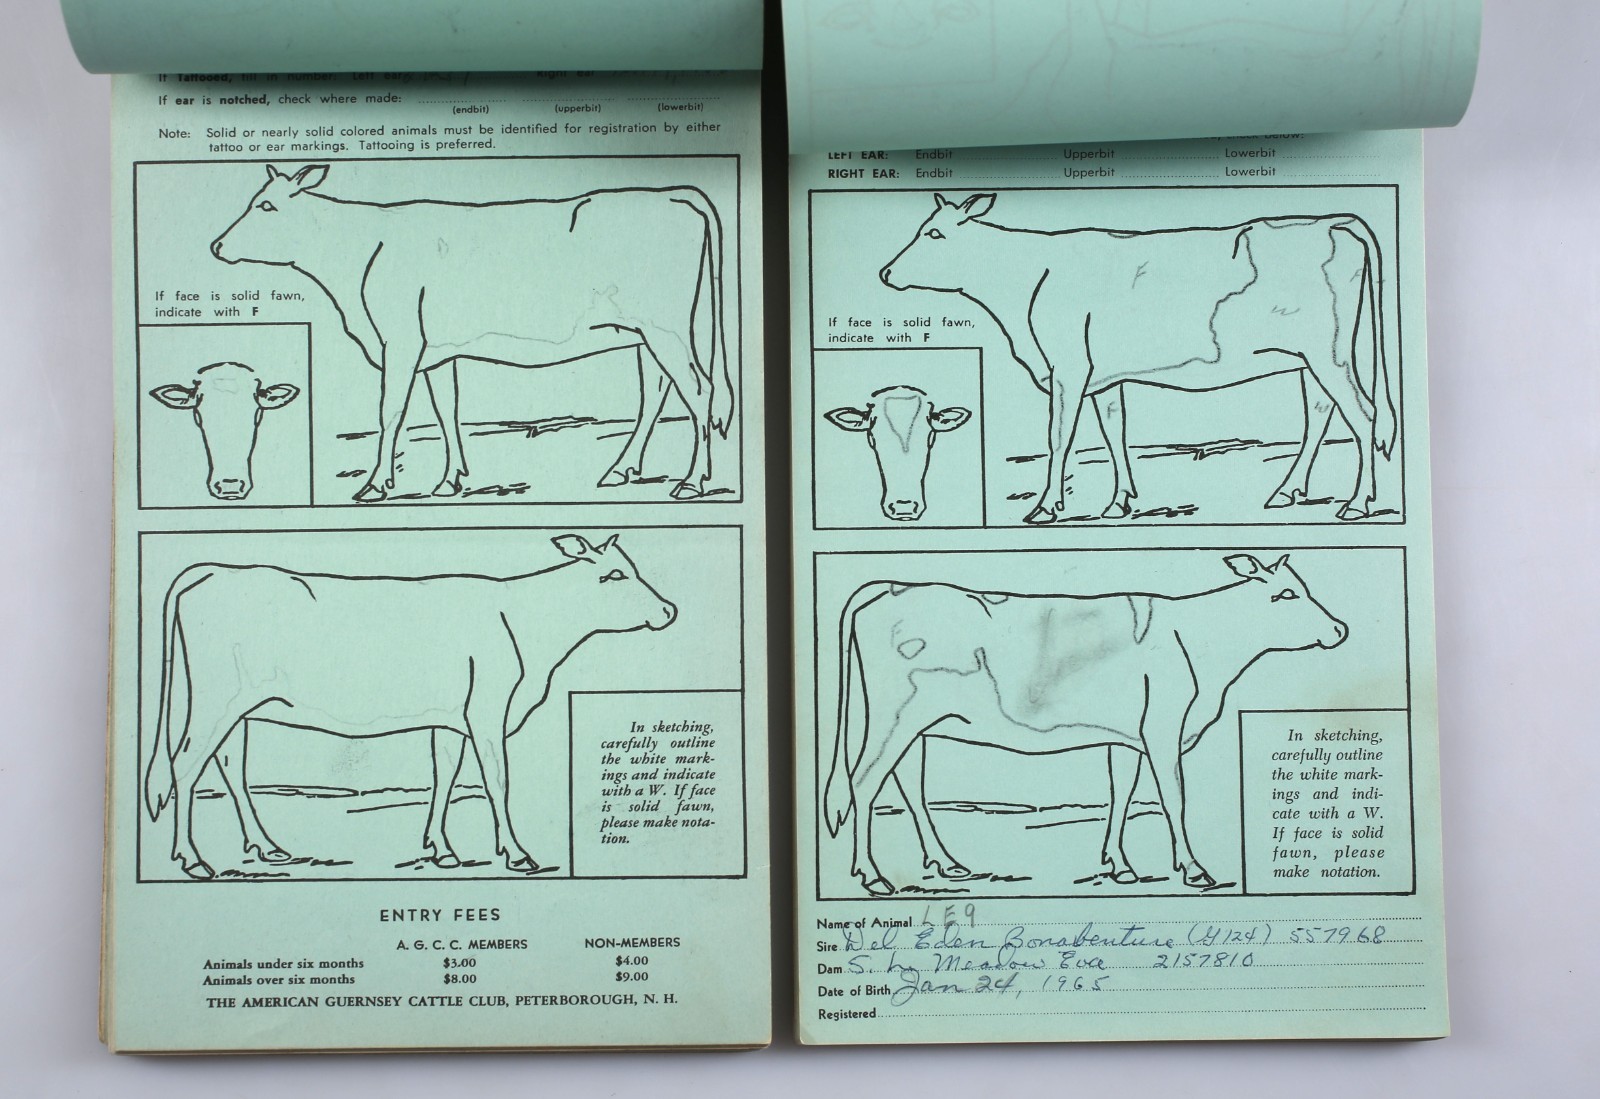 If Tattooed, fill in number: Left ear
Right ear
If ear is notched, check where made:
(endbit) (upperbit) (lowerbit)
Note: Solid or nearly solid colored animals must be identified for registration by either
tattoo or ear markings. Tattooing is preferred.
If face is solid fawn,
indicate with F
In sketching,
carefully outline
the white mark-
ings and indicate
with a W. If face
is solid fawn,
please make nota-
tion.
ENTRY FEES
A. G. C. C. MEMBERS NON-MEMBERS
Animals under six months $3.00 $4.00
Animals over six months $8.00 $9.00
THE AMERICAN GUERNSEY CATTLE CLUB, PETERBOROUGH, N. H.
check below:
LEFT EAR: Endbit Upperbit Lowerbit
RIGHT EAR: Endbit Upperbit Lowerbit
If face is solid fawn,
indicate with F
F
F
W
F
W
F
In sketching,
carefully outline
the white mark-
ings and indi-
cate with a W.
If face is solid
fawn, please
make notation.
Name of Animal LE9
Sire Del Eden Bonabenture (Y124) 557968
Dam S. Meadow Eva 2157810
Date of Birth Jan 24, 1965
Registered